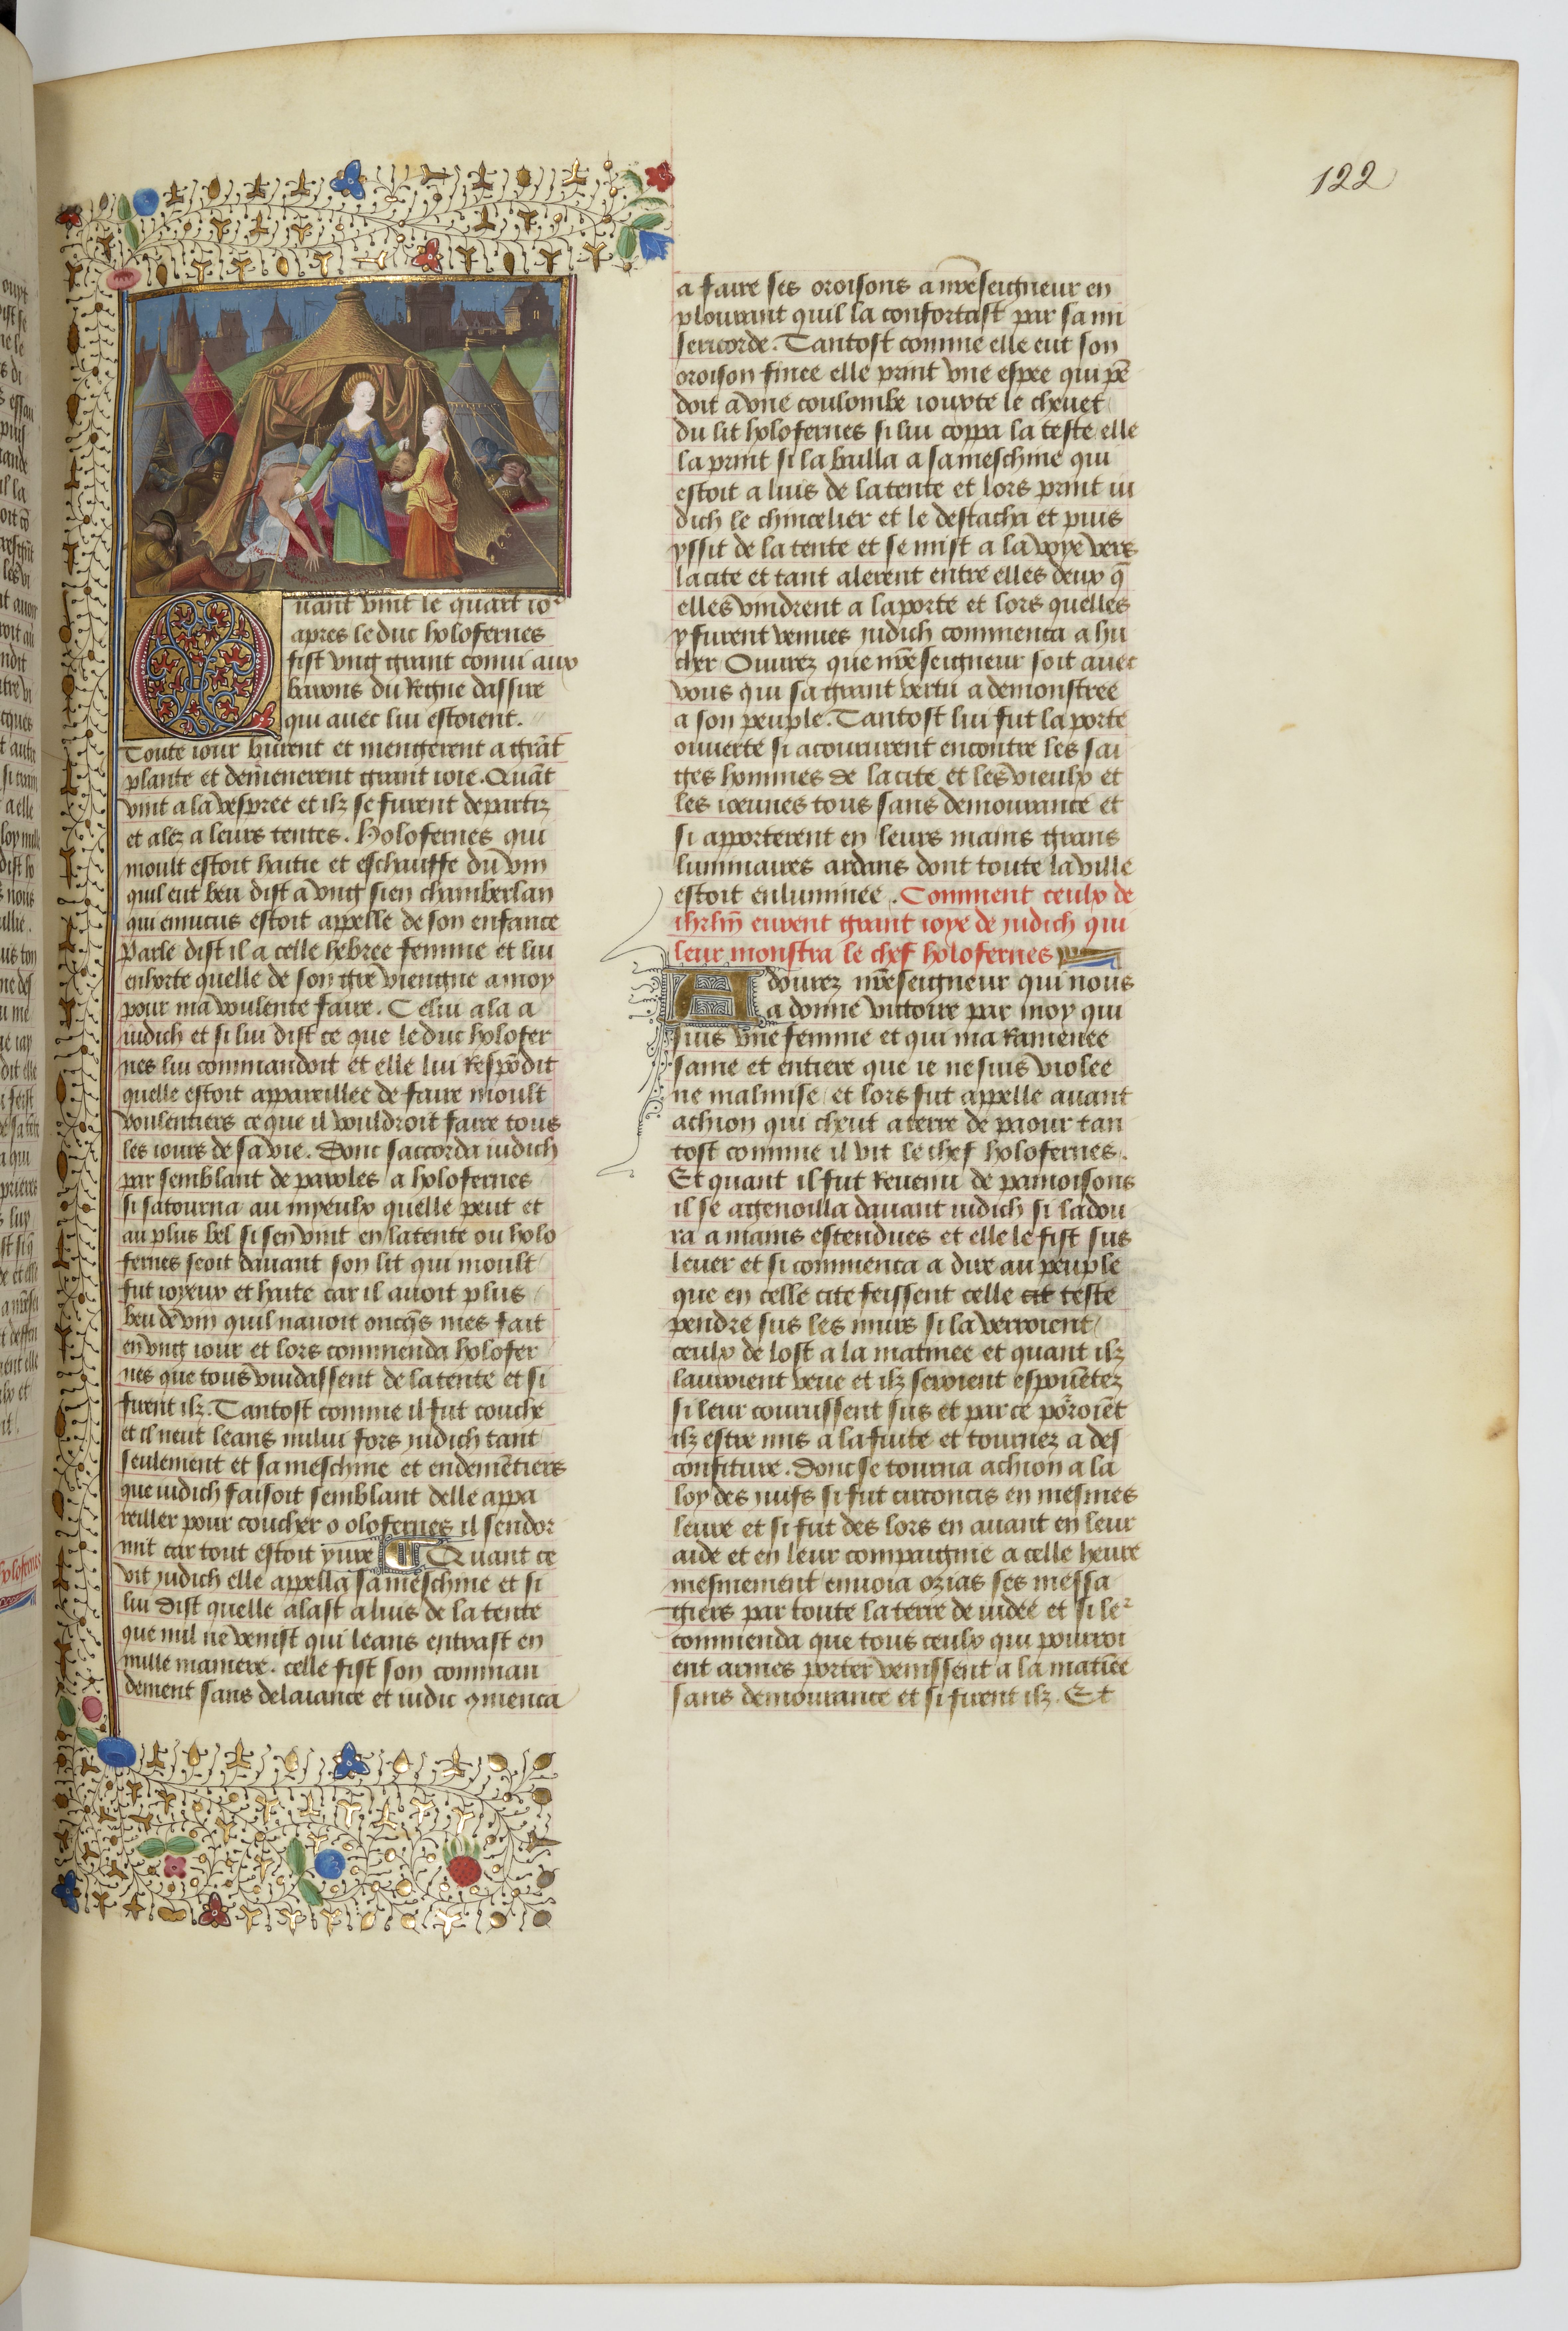 122
Quant vint le quart io2
apres le duc holofernes
fist vng grant conui aux
barons du Regne dassire
qui auec lui estoient.
Toute iour burent et mengerent a grāt
plante et demenerent grant ioie. Quāt
vint a la vespree et ilz se furent departiz
et alez a leurs tentes. Holofernes qui
moult estoit haitie et eschauffe du vin
quil eut beu dist a vng sien chamberlan
qui ennucus estoit appelle de son enfance
Parle dist il a celle hebree femme et lui
enhorte quelle de son gre viengne a moy
pour ma voulente faire. Celui ala a
iudich et si lui dist ce que le duc holofer
nes lui commandoit et elle lui Respōdit
quelle estoit appareillee de faire moult
voulentiers ce que il vouldroit faire tous
les iours de sa vie. Donc saccorda iudich
par semblant de paroles a holofernes
si satourna au myeulx quelle peut et
au plus bel si sen vint en la tente ou holo
fernes seoit dauant son lit qui moult
fut ioyeux et haite car il auoit plus
beu de vin quil nauoit onchs mes fait
en vng iour et lors commenda holofer
nes que tous vuidassent de la tente et si
furent ilz. Tantost comme il fut couche
et il neut leans nului fors iudich tant
seulement et sa meschine et endemētiers
que iudich faisoit semblant delle appa
reiller pour coucher o olofernes il sendor
mit car tout estoit yure ¶ Quant ce
vit iudich elle appella sa meschine et si
lui dist quelle alast a luis de la tente
que nul ne venist qui leans entrast en
nulle maniere. celle fist son comman
dement sans delaiance et iudic 9menca
a faire ses oroisons a nr̄e seigneur en
plourant quil la confortast par sa mi
sericorde. Tantost comme elle eut son
oroison finee elle print vne espee qui pē
doit a vne coulombe iouxte le cheuet
du lit holofernes si lui coppa la teste elle
la print si la bailla a sa meschine qui
estoit a luis de la tente et lors print iu
dich le chincelier et le destacha et puis
yssit de la tente et se mist a la voye vers
la cite et tant alerent entre elles deux q̄
elles vindrent a la porte et lors quelles
y furent venues iudich commenca a hu
cher Ouurez que nr̄e seigneur soit auec
vous qui sa grant vertu a demonstree
a son peuple. Tantost lui fut la porte
ouuerte si acoururent encontre les sai
ges hommes de la cite et les vieulx et
les ioeunes tous sans demourance et
si apporterent en leurs mains grans
luminaires ardans dont toute la ville
estoit enluminee. Comment ceulx de
ihrlm̄ eurent grant ioye de iudich qui
leur monstra le chef holofernes
Adourez nr̄e seigneur qui nous
a donne victoire par moy qui
suis vne femme et qui ma Ramenee
saine et entiere que ie ne suis violee
ne malmise et lors fut appelle auant
achion qui cheut a terre de paour tan
tost comme il vit le chef holofernes.
Et quant il fut Reuenu de pamoisons
il se agenoilla dauant iudich si ladou
ra a mains estendues et elle le fist sus
leuer et si commenca a dire au peuple
que en celle cite feissent celle cit teste
pendre sus les murs si la verroient
ceulx de lost a la matinee et quant ilz
lauroient veue et ilz seroient espouētez
si leur courussent sus et par ce porroiēt
ilz estre mis a la fuite et tournez a des
confiture. Donc se tourna achion a la
loy des iuifs si fut circoncis en mesmes
leure et si fut des lors en auant en leur
aide et en leur compaignie a celle heure
mesmement enuoia ozias ses messa
giers par toute la terre de iudee et si le2
commenda que tous ceulx qui pourroi
ent armes porter venissent a la matīee
sans demourance et si furent ilz. Et